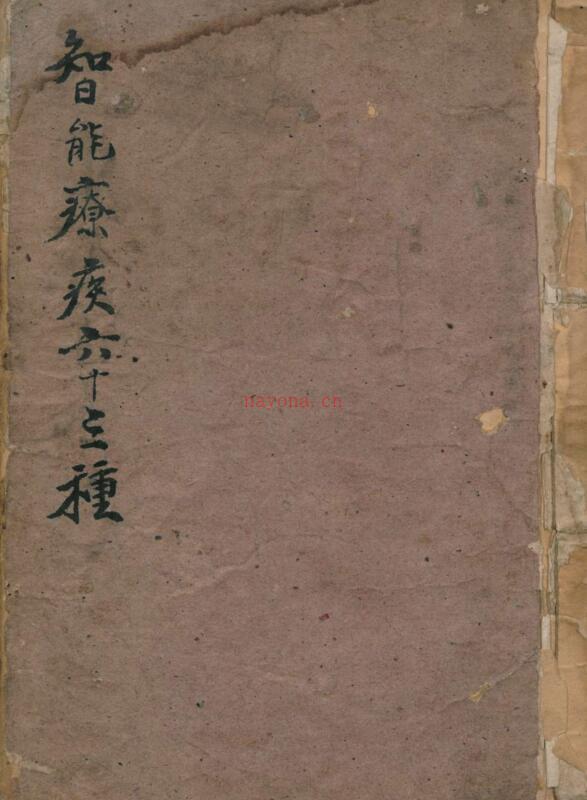 智能療疾六十三種
nayona.cn